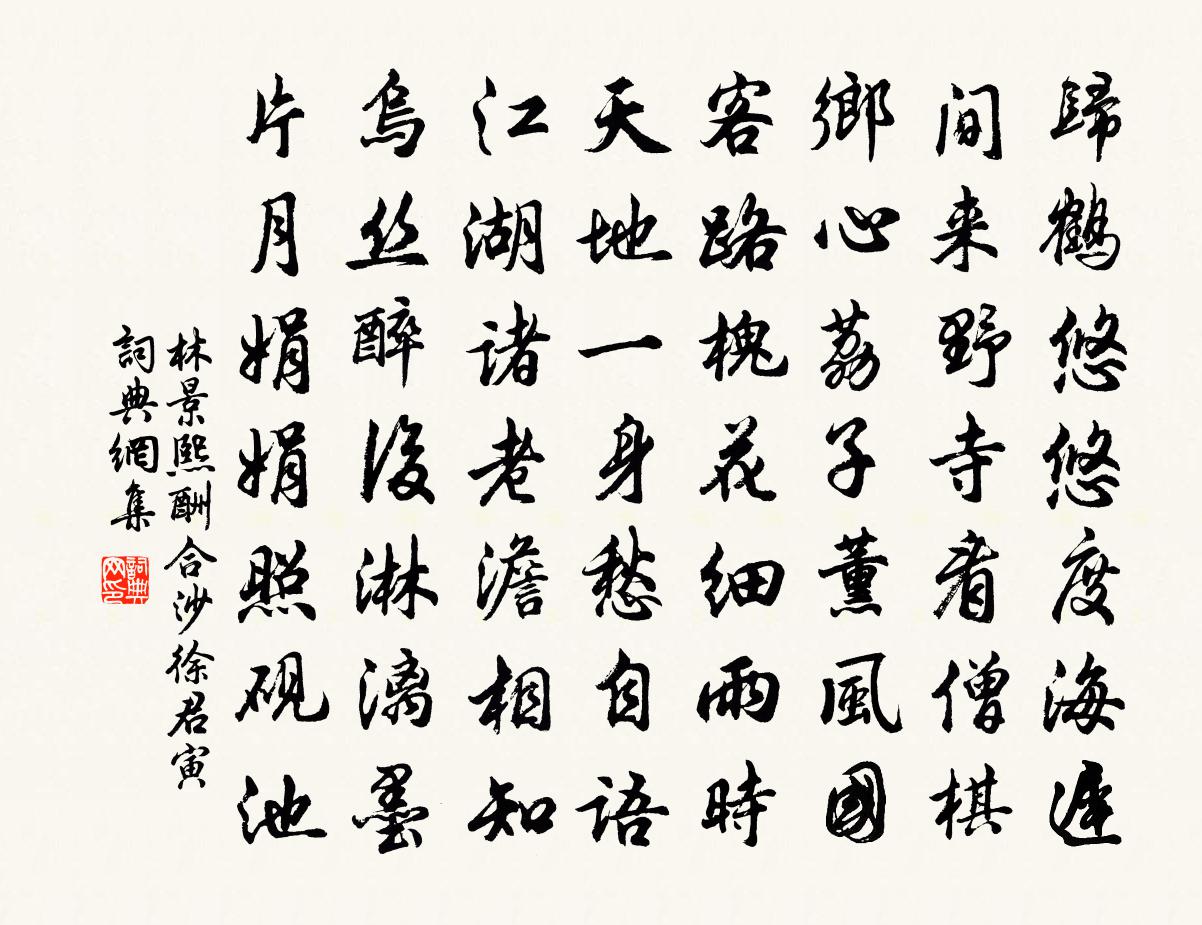 歸鶴悠悠度海遲
间来野寺看僧棋
鄉心荔子薰風國
客路槐花细雨時
天地一身愁自語
江湖诸老澹相知
烏丝醉後淋漓墨
片月娟娟照砚池
林景熙酬合沙徐君寅
詞典網集
詞典网印